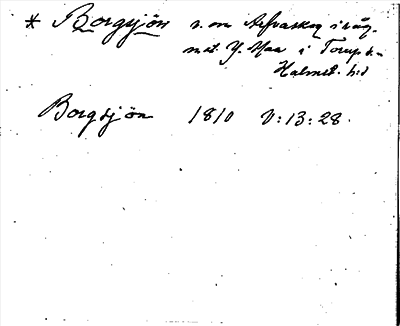 * Borgsjön s. om Arfvaskog i väg.
mat. Y. Maa i Torup s.
Halmst. hd
Borgsjön 1810 V:13:28.